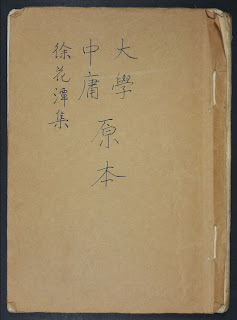 大學
中庸
原本
徐花潭集